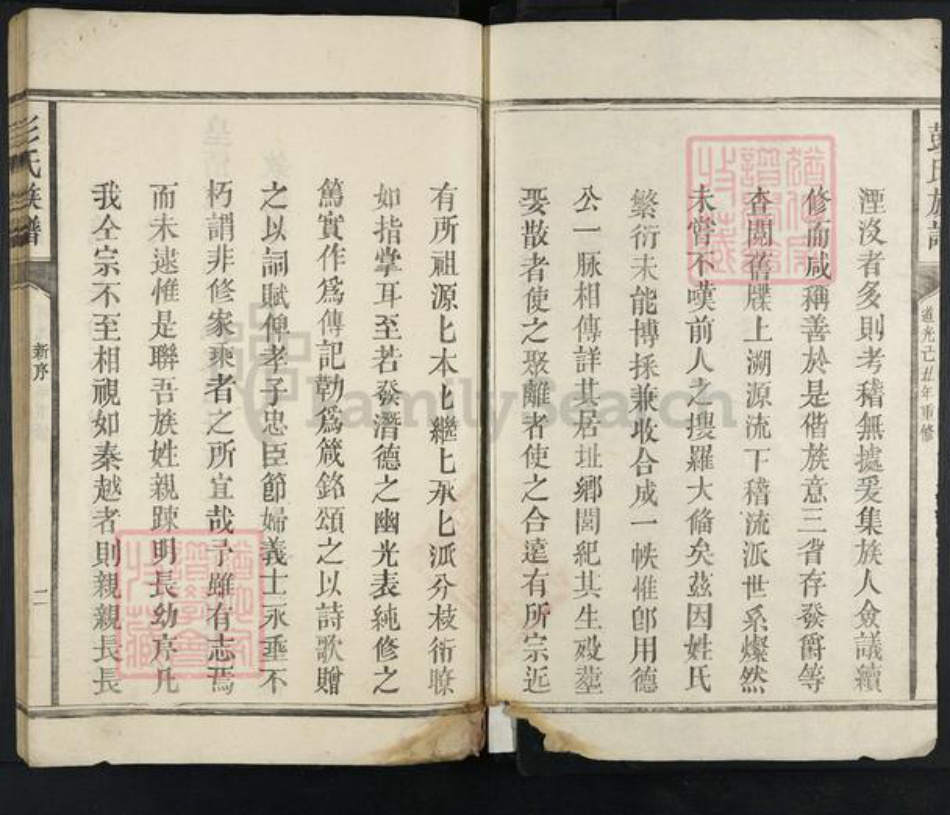 彭氏族譜
道光己丑年重修
湮沒者多則考稽無據爰集族人僉議續
修而咸稱善於是偕族意三省存發爵等
查閱舊牒上溯源流下稽流派世系燦然
未嘗不嘆前人之搜羅大備矣茲因姓氏
繁衍未能博採兼收合成一帙惟卽用德
公一脉相傳詳其居址鄉閭紀其生歿塟
娶散者使之聚離者使之合遠有所宗近
有所祖源匕本匕繼匕承匕派分枝衍瞭
如指掌耳至若發潛德之幽光表純修之
篤實作爲傳記勒爲箴銘頌之以詩歌贈
之以詞賦俾孝子忠臣節婦義士永垂不
朽謂非修家乘者之所宜哉予雖有志焉
而未逮惟是聯吾族姓親踈明長幼序凡
我仝宗不至相視如秦越者則親親長長
彭氏族譜
新序
二
FamilySearch